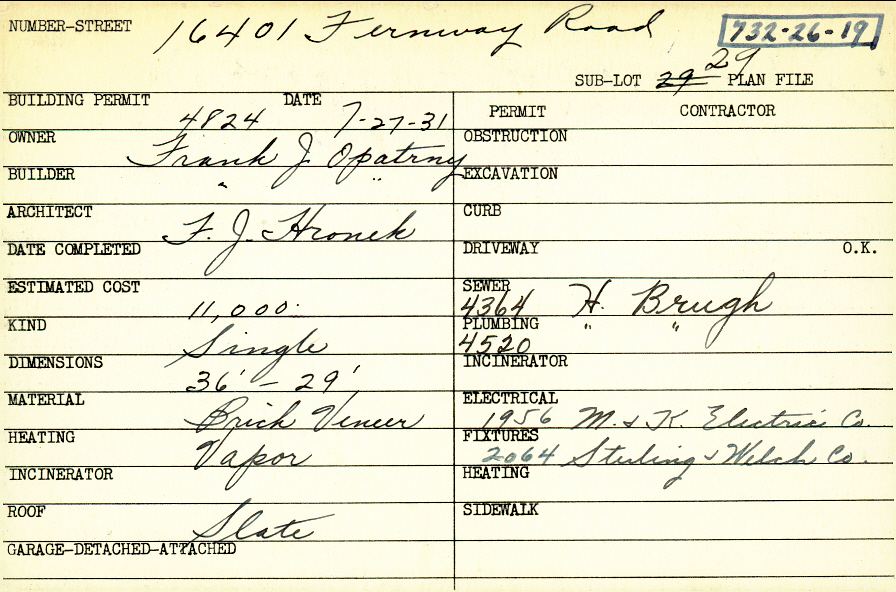 NUMBER-STREET 16401 Fernway Road 732-26-19
SUB-LOT 29 29 PLAN FILE
BUILDING PERMIT 4824 DATE 7-27-31
OWNER Frank J Opatrny
BUILDER " "
ARCHITECT F. J. Hronek
DATE COMPLETED
ESTIMATED COST 11,000.
KIND Single
DIMENSIONS 36' - 29'
MATERIAL Brick Veneer
HEATING Vapor
INCINERATOR
ROOF Slate
GARAGE-DETACHED-ATTACHED
PERMIT CONTRACTOR
OBSTRUCTION
EXCAVATION
CURB
DRIVEWAY O.K.
SEWER 4364 H. Brugh
PLUMBING 4520 " "
INCINERATOR
ELECTRICAL 1956 M. & K. Electric Co.
FIXTURES 2064 Sterling & Welch Co.
HEATING
SIDEWALK